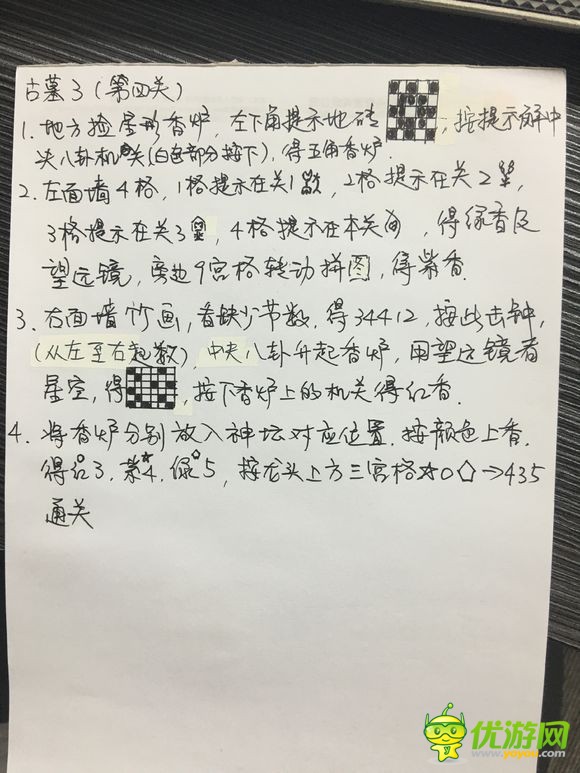 古墓3(第四关)
1.地方捡星形香炉,左下角提示地砖,按提示解中
央八卦机关(白色部分按下),得五角香炉.
2.左面墙4格,1格提示在关1,2格提示在关2,
3格提示在关3,4格提示在本关,得绿香及
望远镜,旁边9宫格转动拼图,得紫香.
3.右面墙竹画,看缺少节数,得34412,按此击钟,
(从左至右起数),中央八卦升起香炉,用望远镜看
星空,得,按下香炉上的机关得红香.
4.将香炉分别放入神坛对应位置.按颜色上香.
得3.4.绿5,按龙头上方三宫格☆O⬠→435
通关
优游网
www.yoyou.com